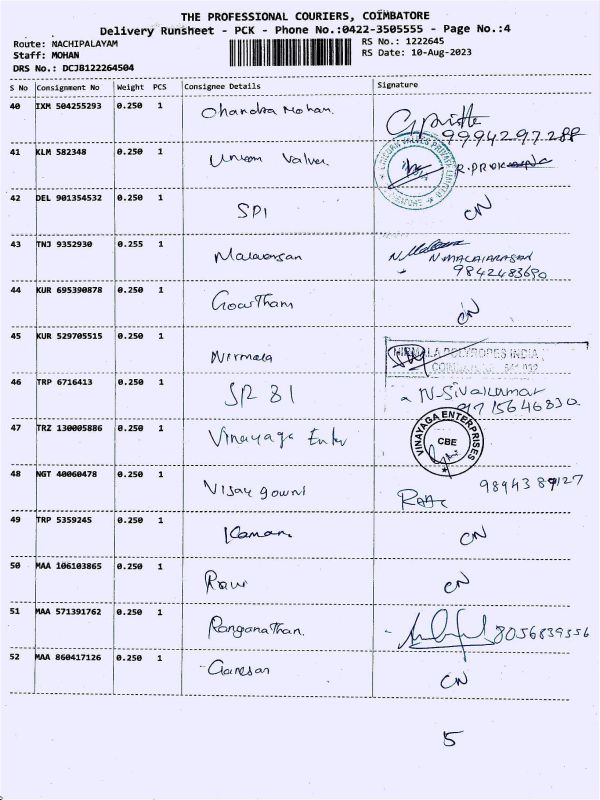 THE PROFESSIONAL COURIERS, COIMBATORE
Delivery Runsheet - PCK - Phone No.:0422-3505555 - Page No.:4
Route: NACHIPALAYAM RS No.: 1222645
Staff: MOHAN RS Date: 10-Aug-2023
DRS No.: DCJB122264504
S No Consignment No Weight PCS Consignee Details Signature
40 IXM 504255293 0.250 1 Chandra Mohan.
9994297288
41 KLM 582348 0.250 1 Union Valves
42 DEL 901354532 0.250 1 SPI CN
43 TNJ 9352930 0.255 1 Malaiarasan N MALAIARASAN
9842483690
44 KUR 695390878 0.250 1 Gowtham CN
45 KUR 529705515 0.250 1 Nirmala NIRMALA POLYROPES INDIA
46 TRP 6716413 0.250 1 SR 81 N-Sivakumar
9715646830
47 TRZ 130005886 0.250 1 Vinayaga Enter VINAYAGA ENTERPRISES CBE
48 NGT 40060478 0.250 1 Vijay gowri
49 TRP 5359245 0.250 1 Raman CN
50 MAA 106103865 0.250 1 Ravi CN
51 MAA 571391762 0.250 1 Ranganathan. 8056839556
52 MAA 860417126 0.250 1 Ganesan CN
5